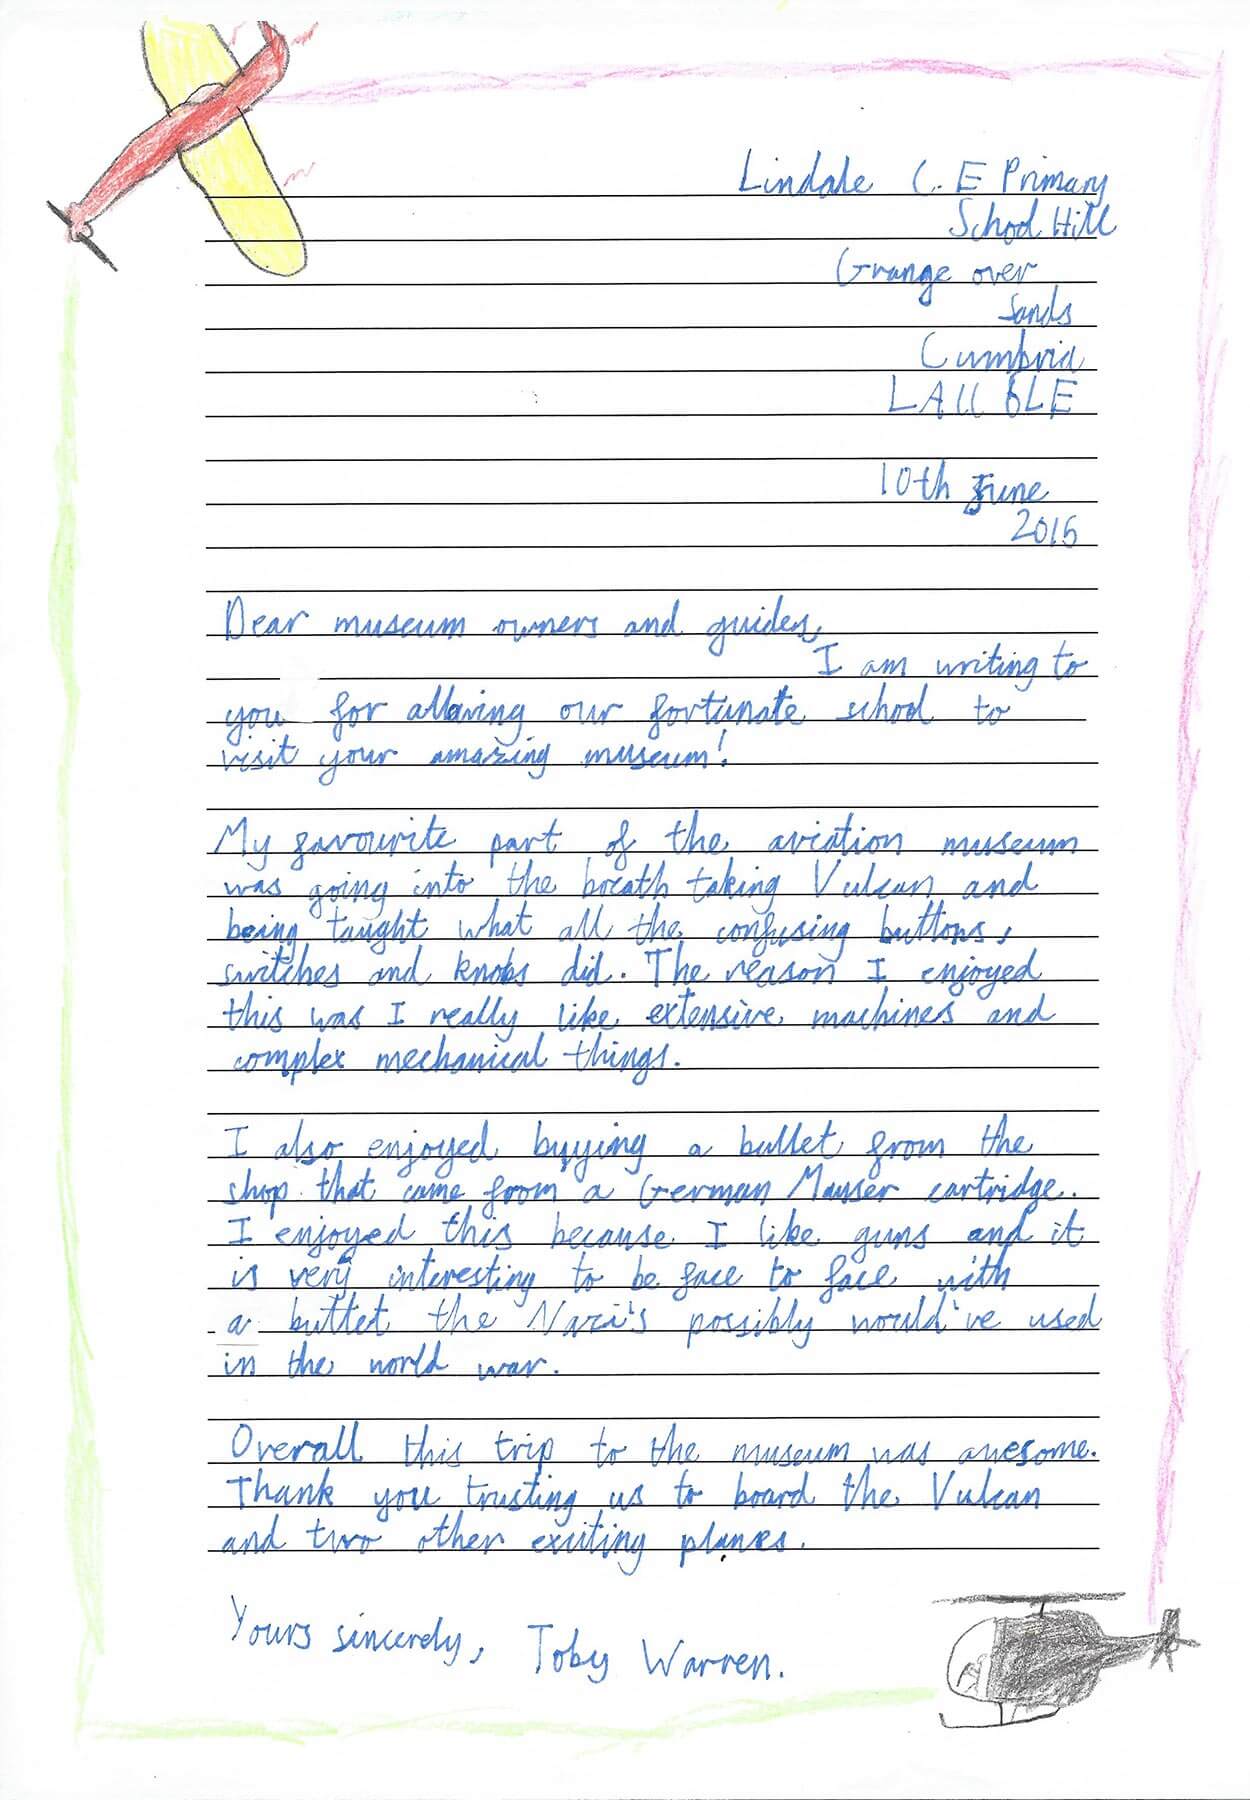 Lindale C.E Primary
School Hill
Grange over
Sands
Cumbria
LA11 6LE
10th June
2015
Dear museum owners and guides,
I am writing to
you for allowing our fortunate school to
visit your amazing museum!
My favourite part of the aviation museum
was going into the breath taking Vulcan and
being taught what all the confusing buttons,
switches and knobs did. The reason I enjoyed
this was I really like extensive machines and
complex mechanical things.
I also enjoyed buying a bullet from the
shop that came from a German Mauser cartridge.
I enjoyed this because I like guns and it
is very interesting to be face to face with
a bullet the Nazi's possibly would've used
in the world war.
Overall this trip to the museum was awesome.
Thank you trusting us to board the Vulcan
and two other exciting planes.
Yours sincerely, Toby Warren.